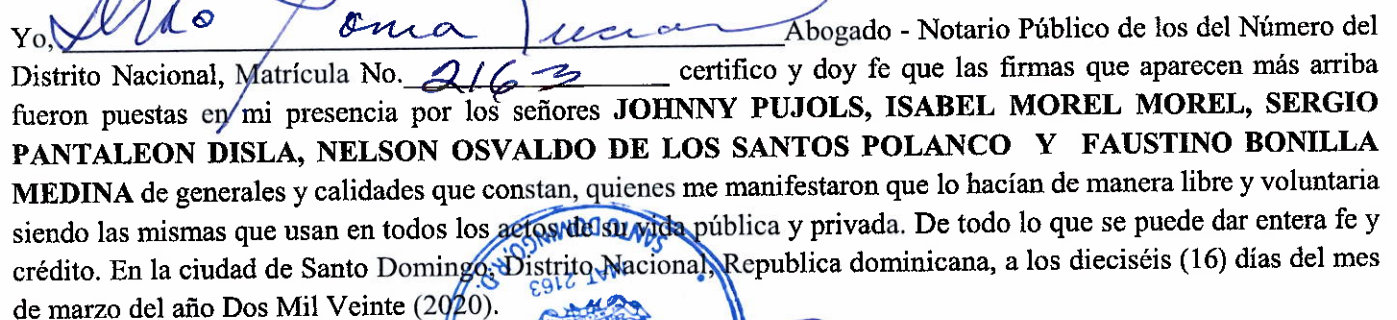 Yo, Abogado - Notario Público de los del Número del
Distrito Nacional, Matrícula No. 2163 certifico y doy fe que las firmas que aparecen más arriba
fueron puestas en mi presencia por los señores JOHNNY PUJOLS, ISABEL MOREL MOREL, SERGIO
PANTALEON DISLA, NELSON OSVALDO DE LOS SANTOS POLANCO Y FAUSTINO BONILLA
MEDINA de generales y calidades que constan, quienes me manifestaron que lo hacían de manera libre y voluntaria
siendo las mismas que usan en todos los actos de su vida pública y privada. De todo lo que se puede dar entera fe y
crédito. En la ciudad de Santo Domingo, Distrito Nacional, Republica dominicana, a los dieciséis (16) días del mes
de marzo del año Dos Mil Veinte (2020).
SANTO DOMINGO, R.D.
MAT 2163